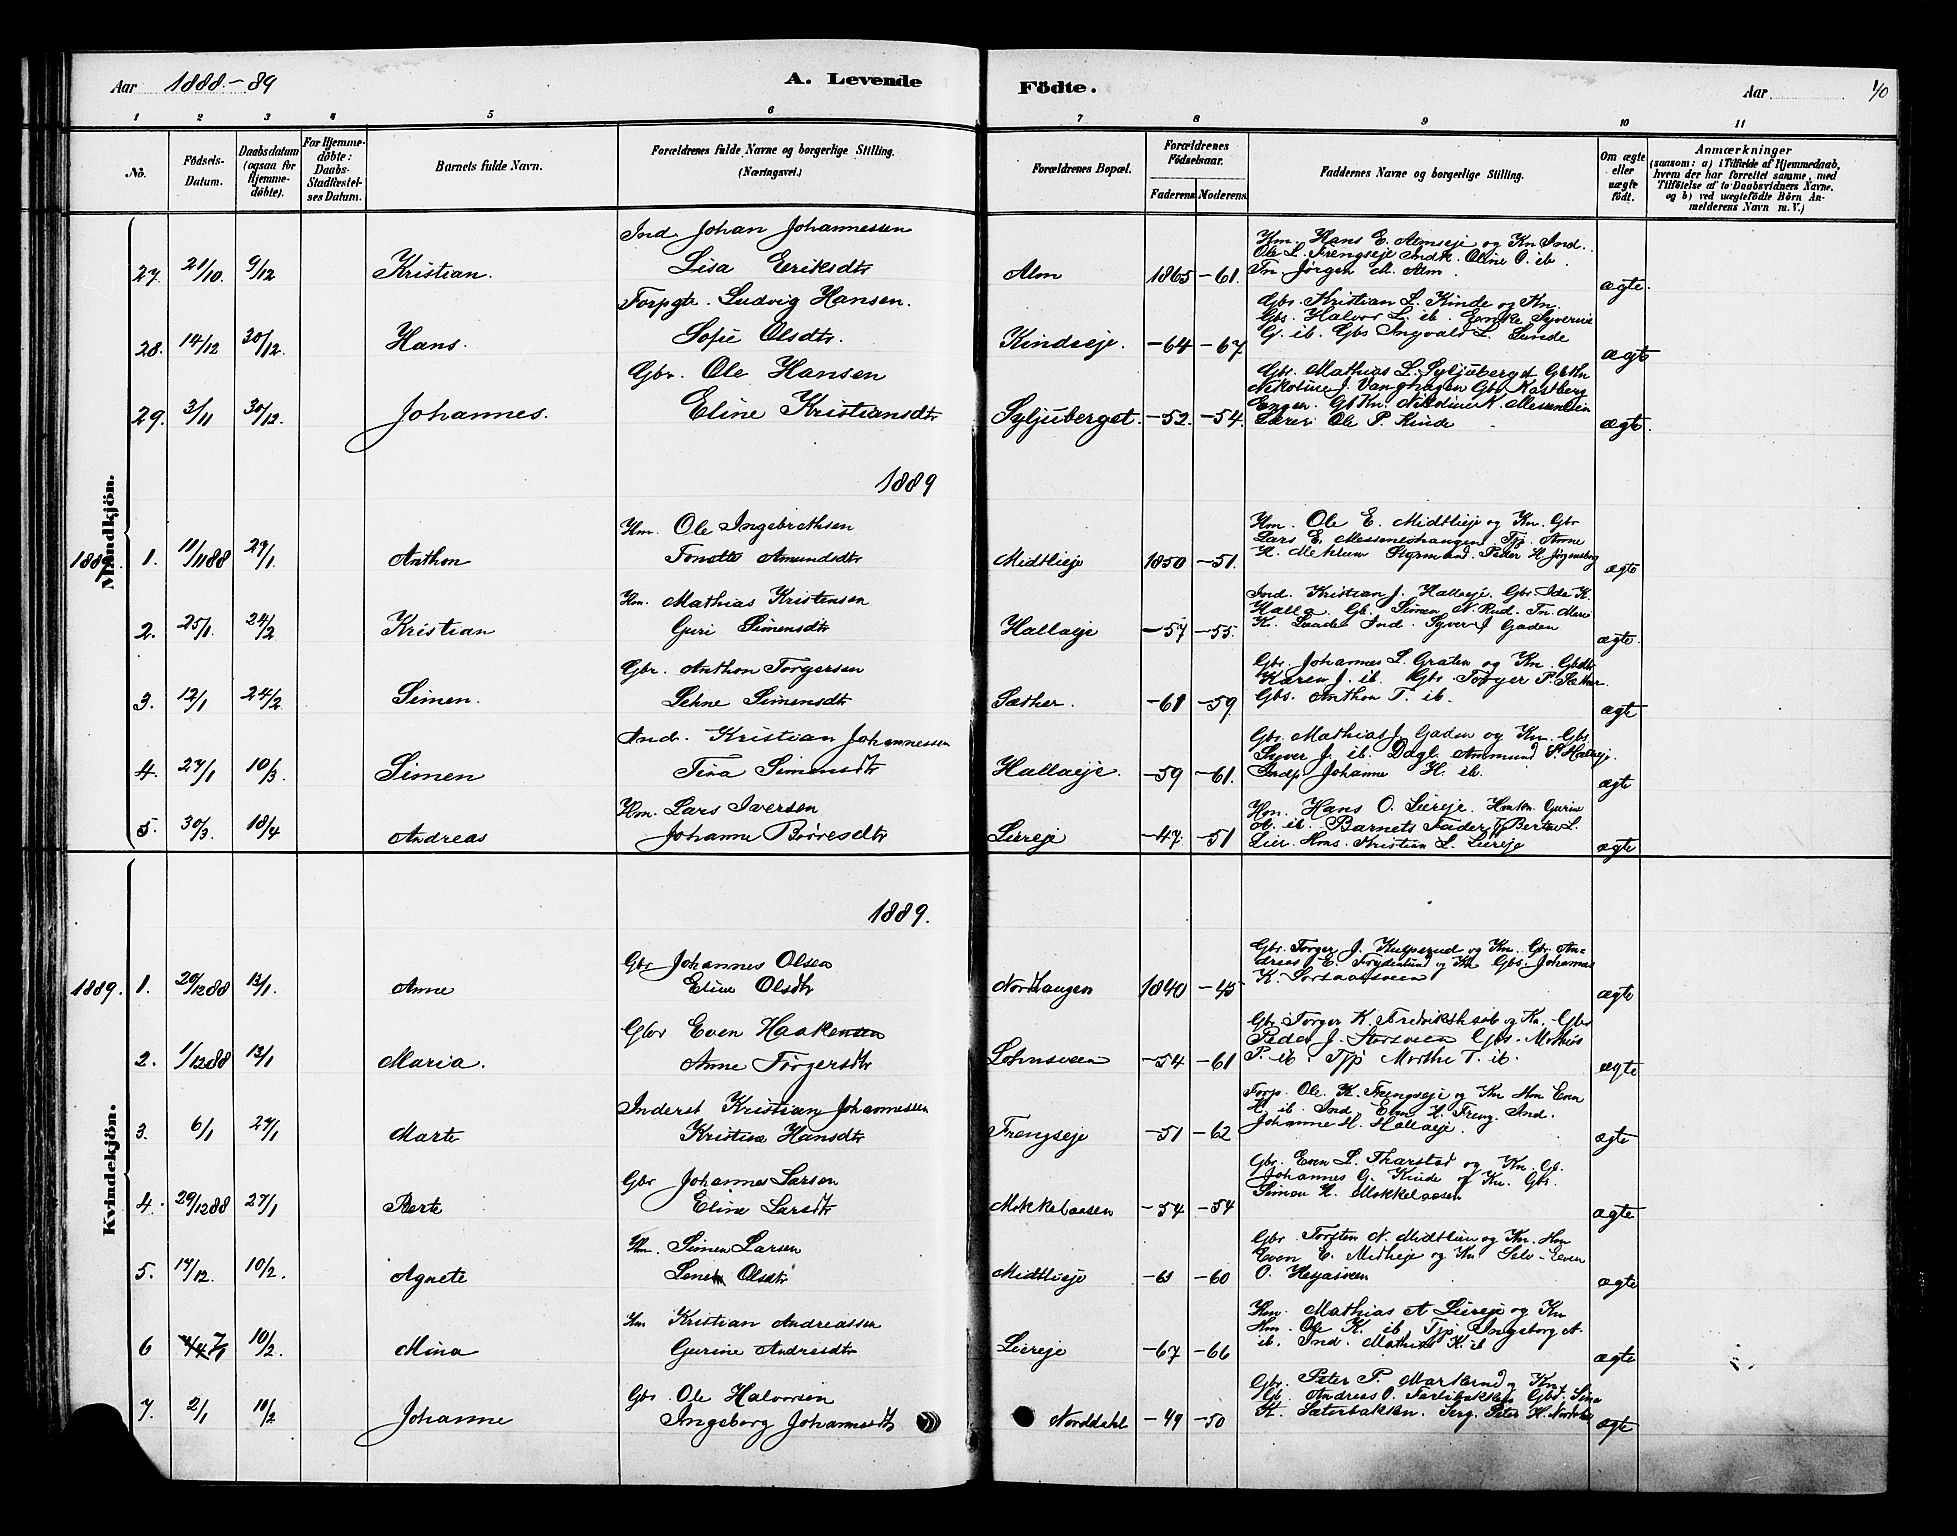 Aar 1888.-89
A. Levende
Födte.
Aar
1 2 3 4 5 6 7 8 9 10 11
No.
Födsels-Datum.
Daabsdatum (ogsaa for Hjemme-döbte).
For Hjemme-döbte: Daabs-Stadfæstel-ses Datum.
Barnets fulde Navn.
Forældrenes fulde Navne og borgerlige Stilling.
(Næringsvei.)
Forældrenes Bopæl.
Forældrenes Födselsaar.
Faderens Moderens
Faddernes Navne og borgerlige Stilling.
Om ægte eller uægte födt.
Anmærkninger
(saasom: a) i Tilfælde af Hjemmedaab,
hvem der har forrettet samme, med
Tilföielse af to Daabsvidners Navne.
og b) ved uægtefödte Börn An-
melderens Navn m. V.)
Mandkjön.
Ind. Johan Johannessen
Lisa Eriksdtr
27. 21/10. 9/12 Kristian. Alm 1865 -61. ægte.
Hm. Hans E. Almseje og Kn Ind.
Ole L. Frengseje Indk. Oline O. ib
Tn Jörgen M. Alm
Forpgtr. Ludvig Hansen.
Sofie Olsdtr.
28. 14/12 30/12. Hans. Kindseje. -64 -67 ægte
Gbr. Kristian L. Kinde og Kn.
Gbs. Halvor L. ib. Enke Syverine
G. ib. Gbs Ingvald L. Sunde
Gbr. Ole Hansen
Eline Kristiansdtr
29. 3/11 30/12. Johannes. Syljuberget. -52. -54. ægte.
Gbr. Mathias L. Syljuberget GbKn
Nikoline J. Vanghagen Gbr Karlberg
Engen. GbKn.
Lærer Ole P. Kinde
1889
1889.
Hm. Ole Ingebrethsen
Tonette Amundsdtr
1. 11/1188 27/1. Anthon Midtlieje 1850 -51. ægte
Hm. Ole E. Midtlieje og Kn. Gbr
Lars E. Messeneshaugen Tjp. Anne
H. Mehlum Peder H. Jörgensborg
Hm. Mathias Kristensen
Guri Simensdtr
2. 25/1. 24/2 Kristian Hallaeje -57 -55. ægte.
Ind. Kristian J. Hallaeje. Gbr Ide K.
Halla. Gb. Simen N. Rud. Tn.
K. Ind. Syver J Gaden
Gbr. Anthon Torgersen
Lehne Simensdtr
3. 12/1 24/2. Simen. Sæther. -61 -59 ægte
Gbr. Johannes L. Graten og Kn. Gbdtr
Karen J. ib. Gbs. Torger P. Sæther.
Gbs. Anthon T. ib.
Ind. Kristian Johannessen
Tina Simensdtr
4. 27/1 10/3. Simen Hallaeje. -59 -61. ægte
Gbr. Mathias J. Gaden og Kn. Gbs
Syver J. ib. Dagl. Ammund S. Hallaeje.
Indp Johanne H. ib.
Hm. Lars Iversen
Johanne Börresdtr
5. 30/3. 18/4 Andreas Liereje -47 -51 ægte
Hm. Hans O. Liereje. Hmkn. Gurine
A. ib. Barnets Fader Tjp Berte L.
Lier. Hms. Kristian L. Liereje
Kvindekjön.
1889.
1889.
Gbr Johannes Olsen
Eline Olsdtr
1. 20/1288 13/1. Anne Nordhaugen 1840 -45 ægte
Gbr. Torger J. Kulperud og Kn. Gbr. An-
dreas E. Frydenlund og Kn Gbs. Johannes
K.
Gbr Even Haakensen
Anne Torgersdtr
2. 1/1288 13/1 Maria. -54 -61 ægte
Gbr Torger K. Fredrikshaab og Kn. Gbr
Peder J. Storsveen Gbs. Mathias
P. ib Tjp Marthe T. ib.
Inderst Kristian Johannessen
Kristine Hansdtr
3. 6/1 27/1 Marte Frengseje -51 -62 ægte
Forp. Ole K. Frengseje og Kn Hm Even
H. ib. Ind. H. Freng. Ind.
Johanne H. Hallaeje.
Gbr Johannes Larsen
Eline Larsdtr
4. 29/1288 27/1 Berte Mokkelaasen -54 -54 ægte
Gbr. Even L. Tharstad og Kn. Gb.
Johannes G. Kinde og Kn. Gbs.
Simen H. Mokkelaasen
Hm. Simen Larsen
Lene Olsdtr
5. 17/12. 10/2. Agnete Midtlieje -63 -60 ægte
Gbr Torsten N. Midtlien og Kn. Hm
Even E. Midtlieje og Kn Selv. Even
O. Heggasveen
Hm Kristian Andreassen
Gurine Andreasdtr
6 7/1 10/2. Mina Liereje -67 -66 ægte
Hm. Mathias A Liereje og Kn
Hm. Ole K. ib Tjp Ingeborg A.
ib. Ind. Mathias K. ib
Gbr. Ole Halvorsen
Ingeborg Johannesdtr
7. 2/1 10/2 Johanne Norddahl -49 -50 ægte
Gbr. Peter P. Markerud og Kn
Gb. Andreas O. Gbdt. Sina
K. Sæterbakken. Serg. Peter H.